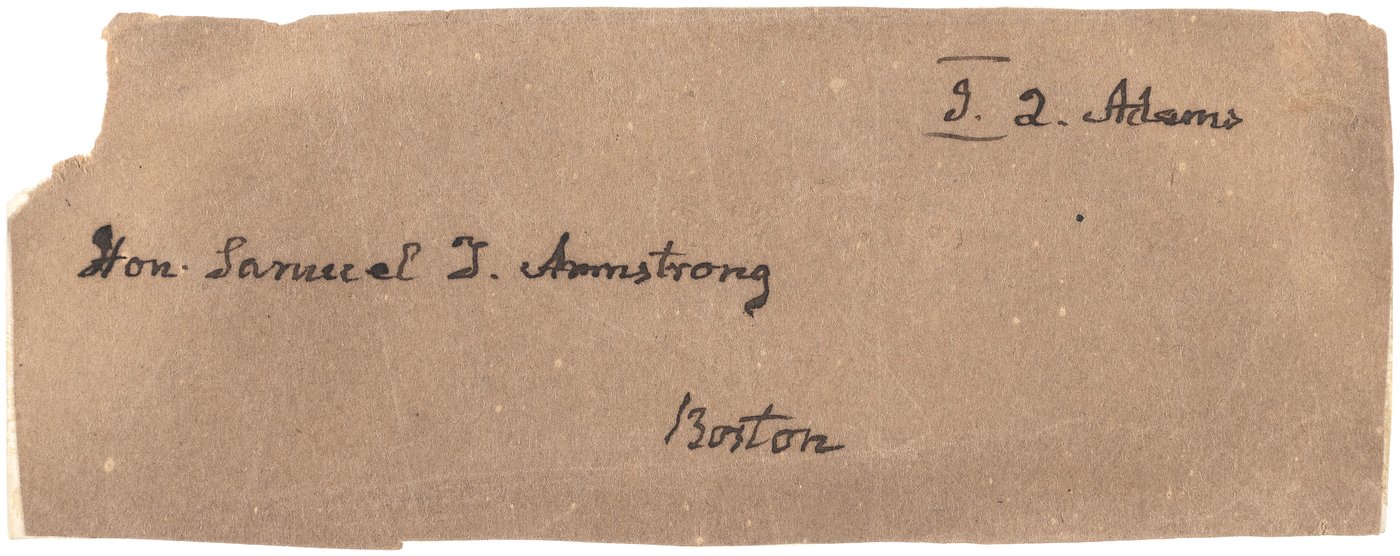 J. Q. Adams
Hon. Samuel T. Armstrong
Boston